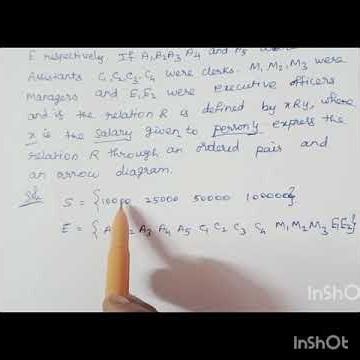 E respectively. If A1 A2 A3 A4 and A5 were
Assistants C1 C2 C3 C4 were clerks. M1 M2 M3 were
Managers and E1 E2 were executive officers
and is the relation R is defined by xRy, where
x is the salary given to person y express the
relation R through an ordered pair and
an arrow diagram.
Sol S = {10000 25000 50000 100000}
E = { A A3 A4 A5 C1 C2 C3 C4 M1 M2 M3 E1 E2}
InShO
InShOt